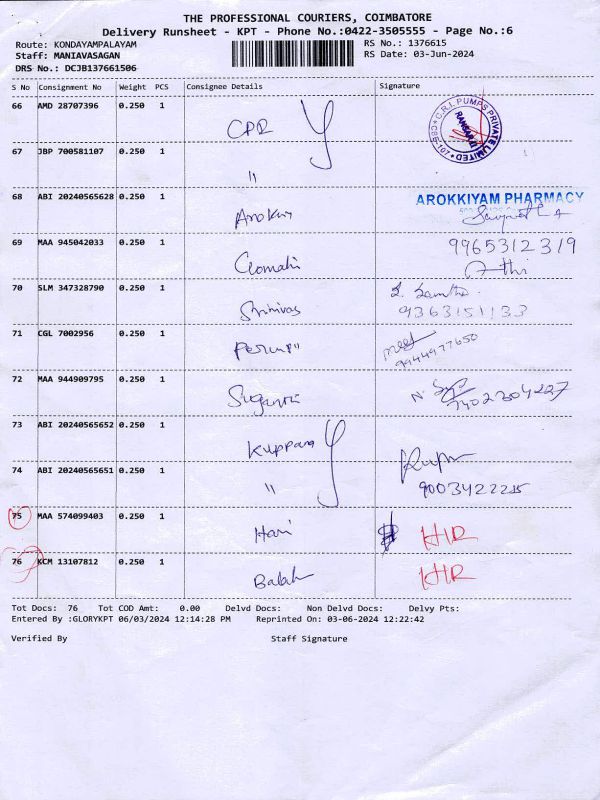 THE PROFESSIONAL COURIERS, COIMBATORE
Delivery Runsheet - KPT - Phone No.:0422-3505555 - Page No.:6
Route: KONDAYAMPALAYAM
RS No.: 1376615
Staff: MANIAVASAGAN
RS Date: 03-Jun-2024
DRS No.: DCJB137661506
S No Consignment No Weight PCS Consignee Details Signature
66 AMD 28707396 0.250 1 CPR C.R.I. PUMPS PRIVATE LIMITED
67 JBP 700581107 0.250 1 "
68 ABI 20240565628 0.250 1 AROKKIYAM PHARMACY
69 MAA 945042033 0.250 1 Gomathi 9965312319
70 SLM 347328790 0.250 1 Srinivas 9363151133
71 CGL 7002956 0.250 1 9944977650
72 MAA 944909795 0.250 1 7402304227
73 ABI 20240565652 0.250 1
74 ABI 20240565651 0.250 1 " 9003422225
75 MAA 574099403 0.250 1 Hari
76 KCM 13107812 0.250 1
Tot Docs: 76 Tot COD Amt: 0.00 Delvd Docs: Non Delvd Docs: Delvy Pts:
Entered By :GLORYKPT 06/03/2024 12:14:28 PM Reprinted On: 03-06-2024 12:22:42
Verified By Staff Signature